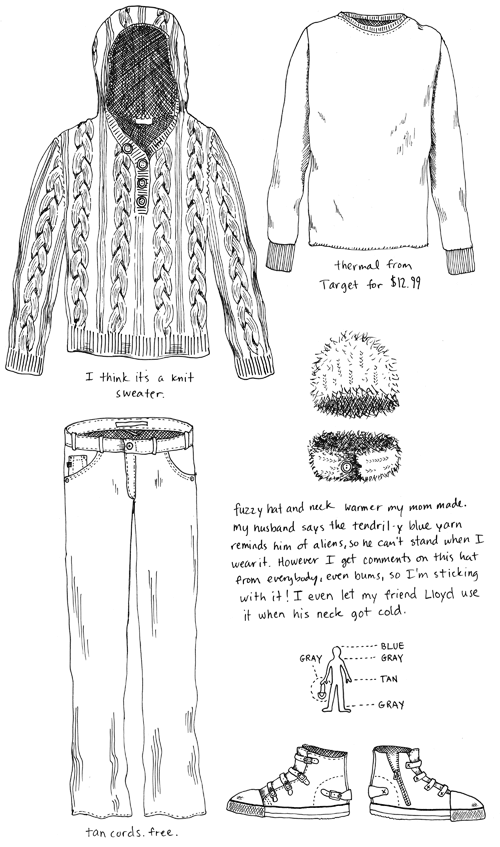 thermal from
Target for $12.99
I think it's a knit
sweater.
fuzzy hat and neck warmer my mom made.
my husband says the tendril-y blue yarn
reminds him of aliens, so he can't stand when I
wear it. However I get comments on this hat
from everybody, even bums, so I'm sticking
with it! I even let my friend Lloyd use
it when his neck got cold.
BLUE
GRAY
GRAY
TAN
GRAY
tan cords. free.